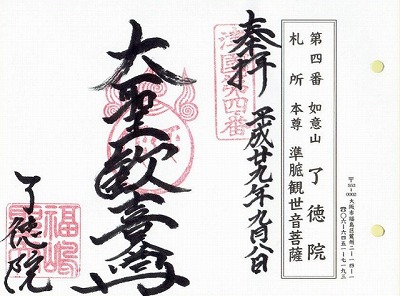 第四番 如意山 了徳院
札所 本尊 準胝観世音菩薩
〒553-0002 大阪市福島区鷺洲二-一四-一
☎〇六-六四五一-七一九三
奉拝
津國第四番
平成廿九年九月八日
大聖歓喜天
了徳院
福嶋